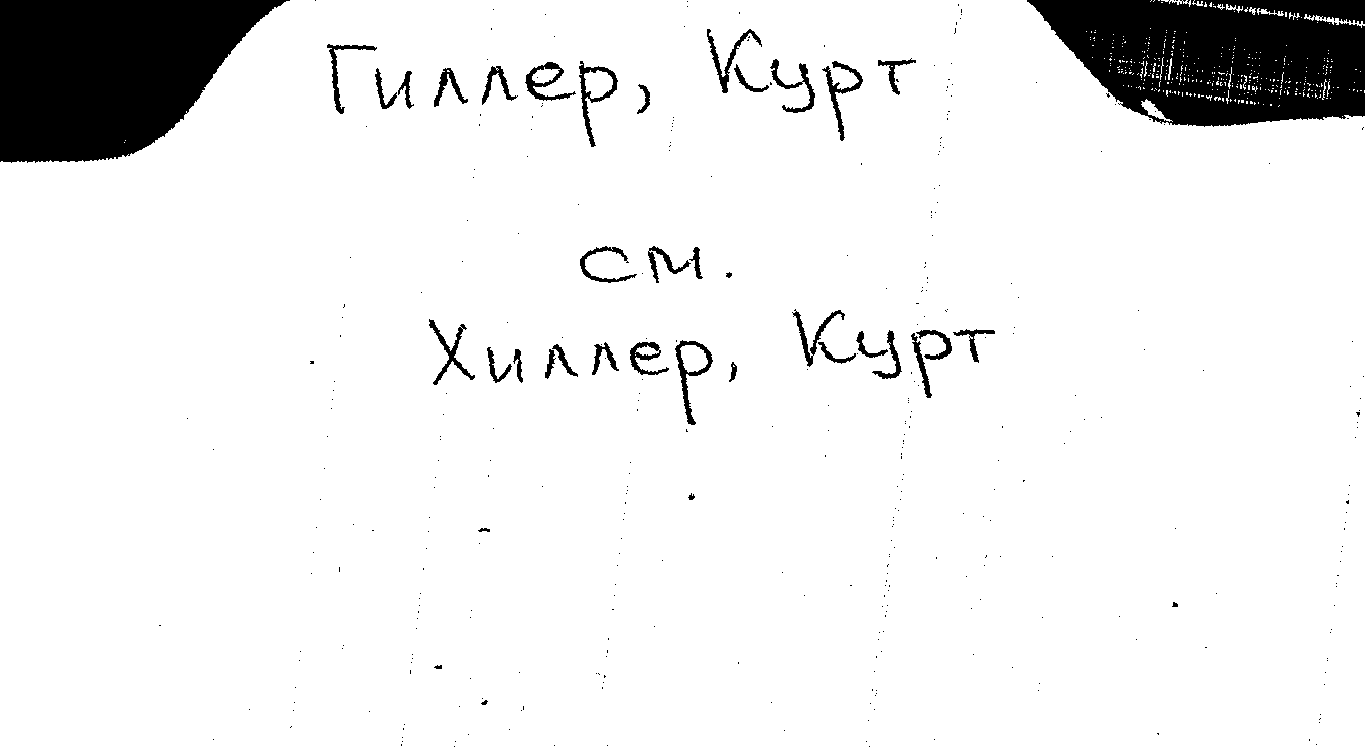 Гиллер, Курт
см.
Хиллер, Курт